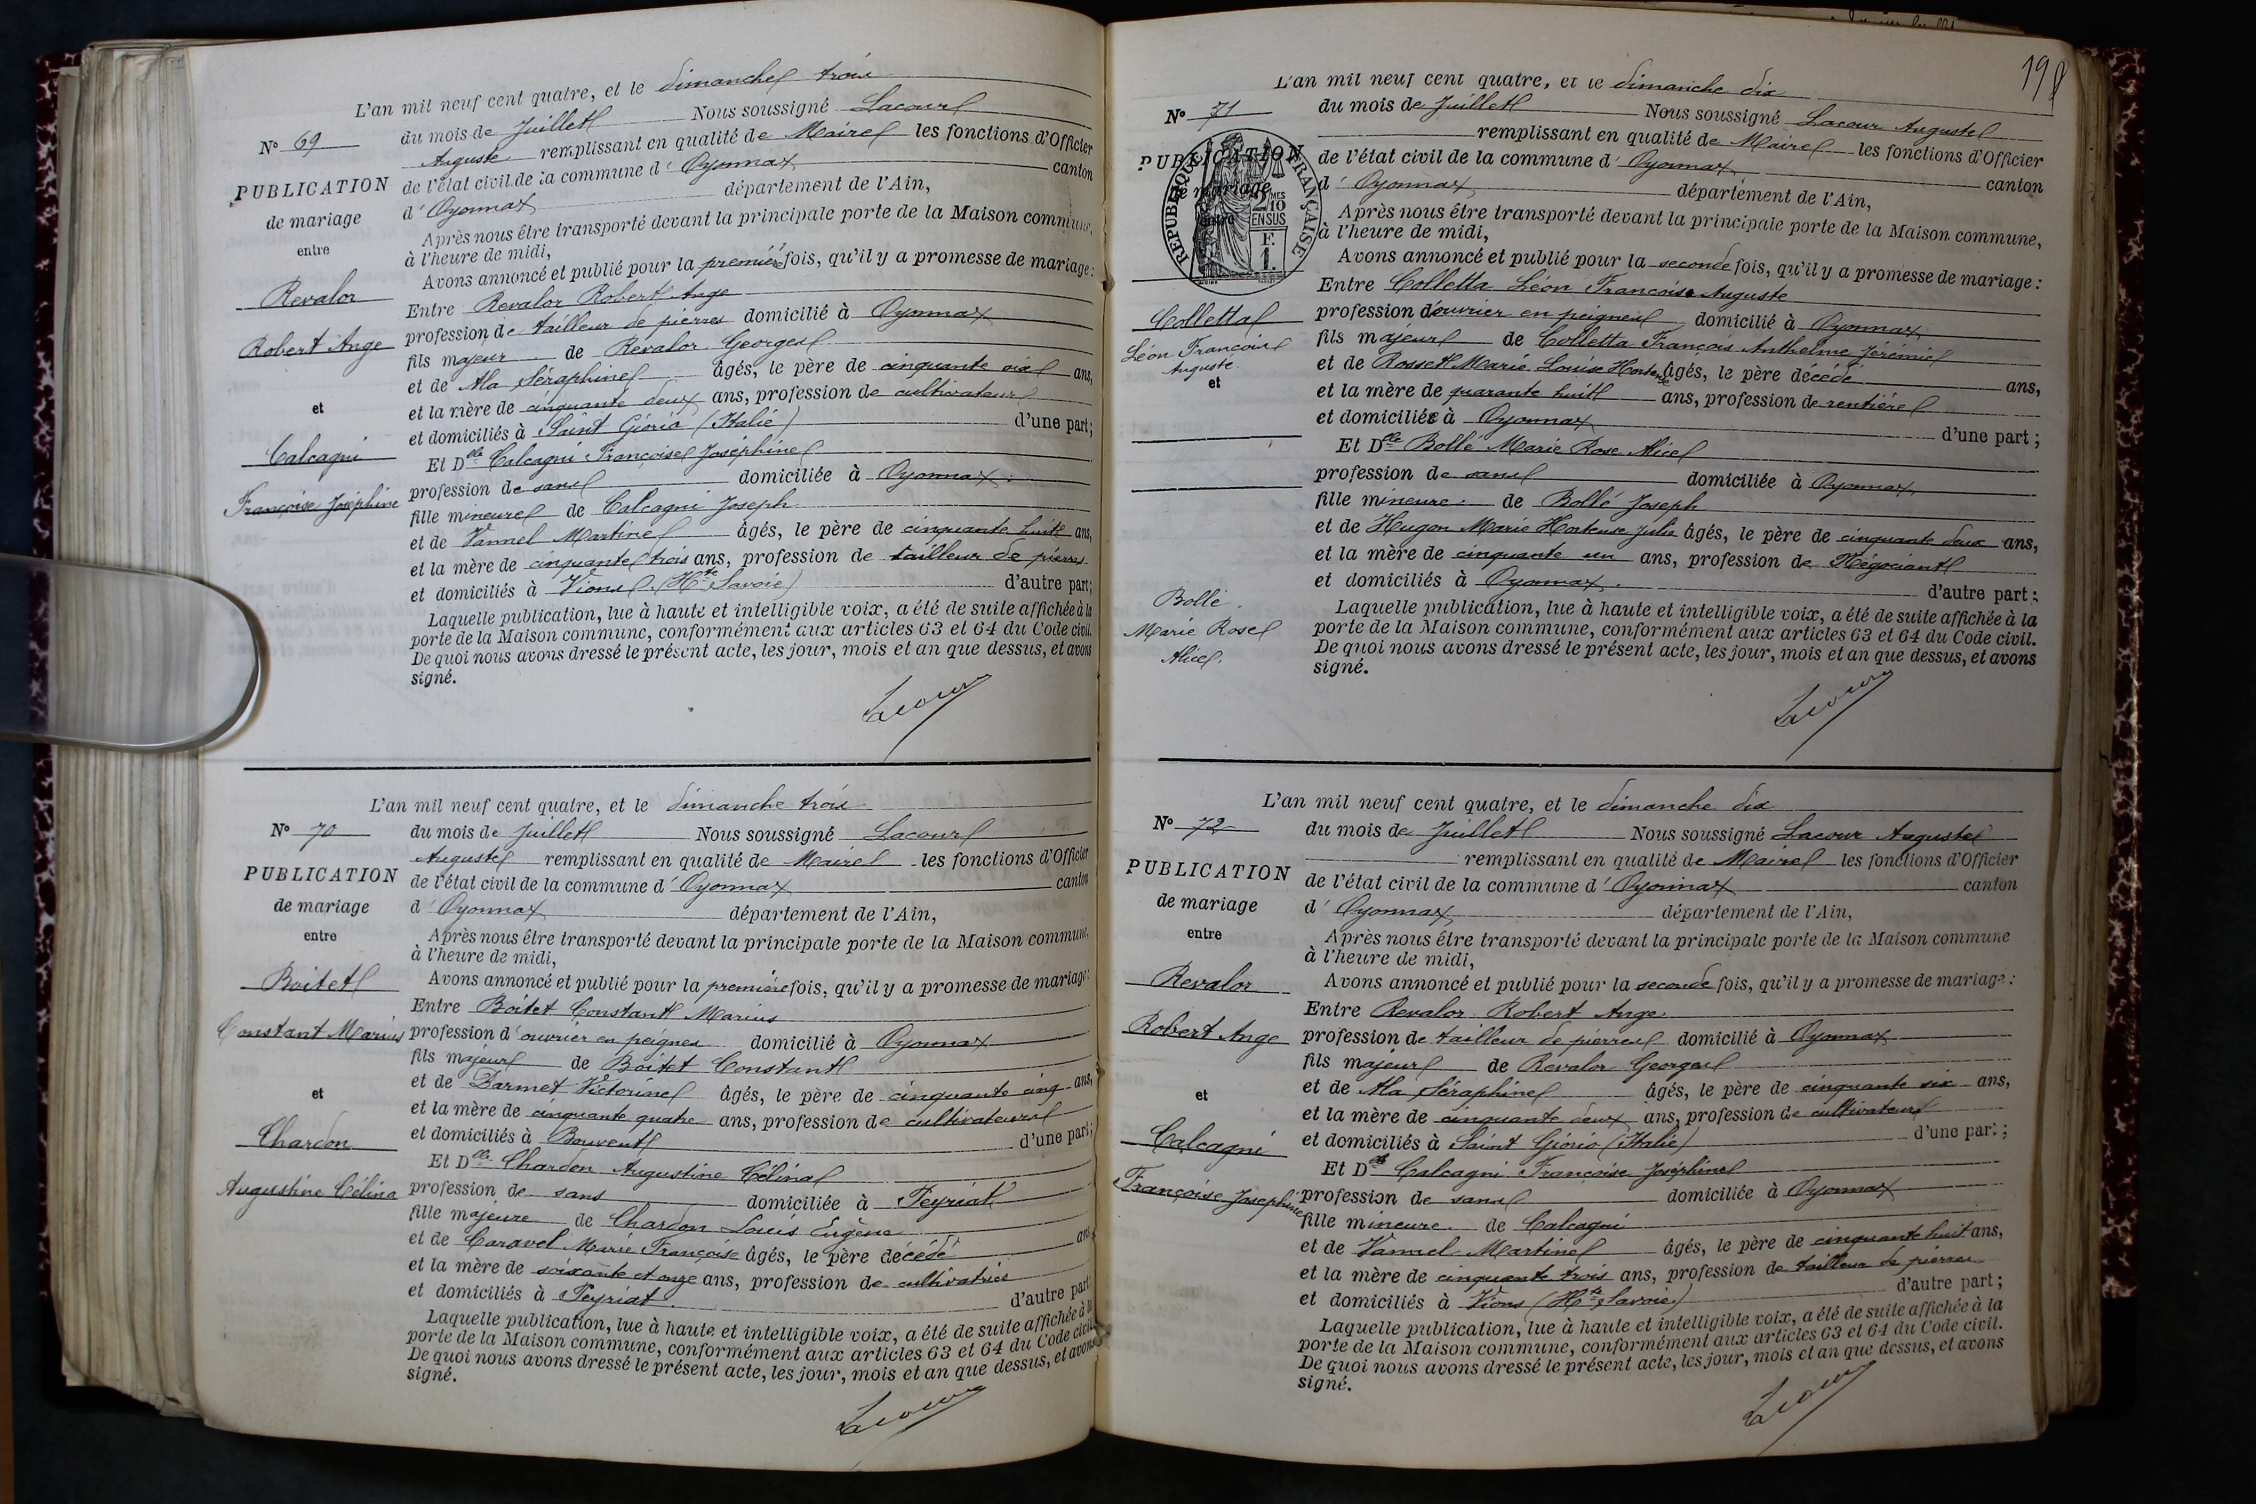 L'an mil neuf cent quatre, et le dimanche trois
N° 69
du mois de Juillet Nous soussigné Lacour
Auguste remplissant en qualité de Maire les fonctions d'Officier
PUBLICATION
de mariage
entre
Revalor
Robert Ange
et
Calcagni
Françoise Joséphine
de l'état civil de la commune d' Oyonnax canton
d' Oyonnax département de l'Ain,
Après nous être transporté devant la principale porte de la Maison commune,
à l'heure de midi,
Avons annoncé et publié pour la première fois, qu'il y a promesse de mariage :
Entre Revalor Robert Ange
profession de tailleur de pierres domicilié à Oyonnax
fils majeur de Revalor Georges
et de Ala Séraphine âgés, le père de cinquante six ans,
et la mère de cinquante deux ans, profession de cultivateurs
et domiciliés à Saint Giorio (Italie) d'une part;
Et Dlle Calcagni Françoise Joséphine
profession de sans domiciliée à Oyonnax
fille mineure de Calcagni Joseph
et de Vannel Martine âgés, le père de cinquante huit ans,
et la mère de cinquante trois ans, profession de tailleur de pierres
et domiciliés à Vions (Hte Savoie) d'autre part;
Laquelle publication, lue à haute et intelligible voix, a été de suite affichée à la
porte de la Maison commune, conformément aux articles 63 et 64 du Code civil.
De quoi nous avons dressé le présent acte, les jour, mois et an que dessus, et avons
signé.
Lacour
L'an mil neuf cent quatre, et le dimanche trois
N° 70
du mois de Juillet Nous soussigné Lacour
Auguste remplissant en qualité de Maire les fonctions d'Officier
PUBLICATION
de mariage
entre
Boitet
Constant Marius
et
Chardon
Augustine Célina
de l'état civil de la commune d' Oyonnax canton
d' Oyonnax département de l'Ain,
Après nous être transporté devant la principale porte de la Maison commune,
à l'heure de midi,
Avons annoncé et publié pour la première fois, qu'il y a promesse de mariage :
Entre Boitet Constant Marius
profession d'ouvrier en peignes domicilié à Oyonnax
fils majeur de Boitet Constant
et de Darmet Victorine âgés, le père de cinquante cinq ans,
et la mère de cinquante quatre ans, profession de cultivateurs
et domiciliés à Bouvent d'une part;
Et Dlle Chardon Augustine Célina
profession de sans domiciliée à Peyriat
fille majeure de Chardon Louis Eugène
et de Caravel Marie Françoise âgés, le père décédé ans
et la mère de soixante et onze ans, profession de cultivatrice
et domiciliés à Peyriat d'autre part
Laquelle publication, lue à haute et intelligible voix, a été de suite affichée à la
porte de la Maison commune, conformément aux articles 63 et 64 du Code civil
De quoi nous avons dressé le présent acte, les jour, mois et an que dessus, et avons
signé.
Lacour
198
L'an mil neuf cent quatre, et le dimanche dix
N° 71
du mois de Juillet Nous soussigné Lacour Auguste
remplissant en qualité de Maire les fonctions d'Officier
PUBLICATION
de mariage
entre
REPUBLIQUE FRANÇAISE
2/10 EN SUS
F. 1.
Colletta
Léon François
Auguste
et
Bollé
Marie Rose
Alice.
de l'état civil de la commune d' Oyonnax
d' Oyonnax département de l'Ain, canton
Après nous être transporté devant la principale porte de la Maison commune,
à l'heure de midi,
Avons annoncé et publié pour la seconde fois, qu'il y a promesse de mariage :
Entre Colletta Léon François Auguste
profession d'ouvrier en peignes domicilié à Oyonnax
fils majeur de Colletta François Anthelme Jérémie
et de Rosset Marie Louise Hortense âgés, le père décédé ans,
et la mère de quarante huit ans, profession de rentière
et domiciliée à Oyonnax d'une part ;
Et Dlle Bollé Marie Rose Alice
profession de sans domiciliée à Oyonnax
fille mineure de Bollé Joseph
et de Hugon Marie Hortense Julie âgés, le père de cinquante deux ans,
et la mère de cinquante un ans, profession de Négociant
et domiciliés à Oyonnax d'autre part ;
Laquelle publication, lue à haute et intelligible voix, a été de suite affichée à la
porte de la Maison commune, conformément aux articles 63 et 64 du Code civil.
De quoi nous avons dressé le présent acte, les jour, mois et an que dessus, et avons
signé.
Lacour
L'an mil neuf cent quatre, et le dimanche dix
N° 72
du mois de Juillet Nous soussigné Lacour Auguste
remplissant en qualité de Maire les fonctions d'Officier
PUBLICATION
de mariage
entre
Revalor
Robert Ange
et
Calcagni
Françoise Josephine
de l'état civil de la commune d' Oyonnax canton
d' Oyonnax département de l'Ain,
Après nous être transporté devant la principale porte de la Maison commune
à l'heure de midi,
Avons annoncé et publié pour la seconde fois, qu'il y a promesse de mariage :
Entre Revalor Robert Ange
profession de tailleur de pierres domicilié à Oyonnax
fils majeur de Revalor Georges
et de Ala Séraphine âgés, le père de cinquante six ans,
et la mère de cinquante deux ans, profession de cultivateurs
et domiciliés à Saint Giorio (Italie) d'une part ;
Et Dlle Calcagni Françoise Joséphine
profession de sans domiciliée à Oyonnax
fille mineure de Calcagni
et de Vannel Martine âgés, le père de cinquante huit ans,
et la mère de cinquante trois ans, profession de tailleur de pierres
et domiciliés à Vions (Hte Savoie) d'autre part ;
Laquelle publication, lue à haute et intelligible voix, a été de suite affichée à la
porte de la Maison commune, conformément aux articles 63 et 64 du Code civil.
De quoi nous avons dressé le présent acte, les jour, mois et an que dessus, et avons
signé.
Lacour